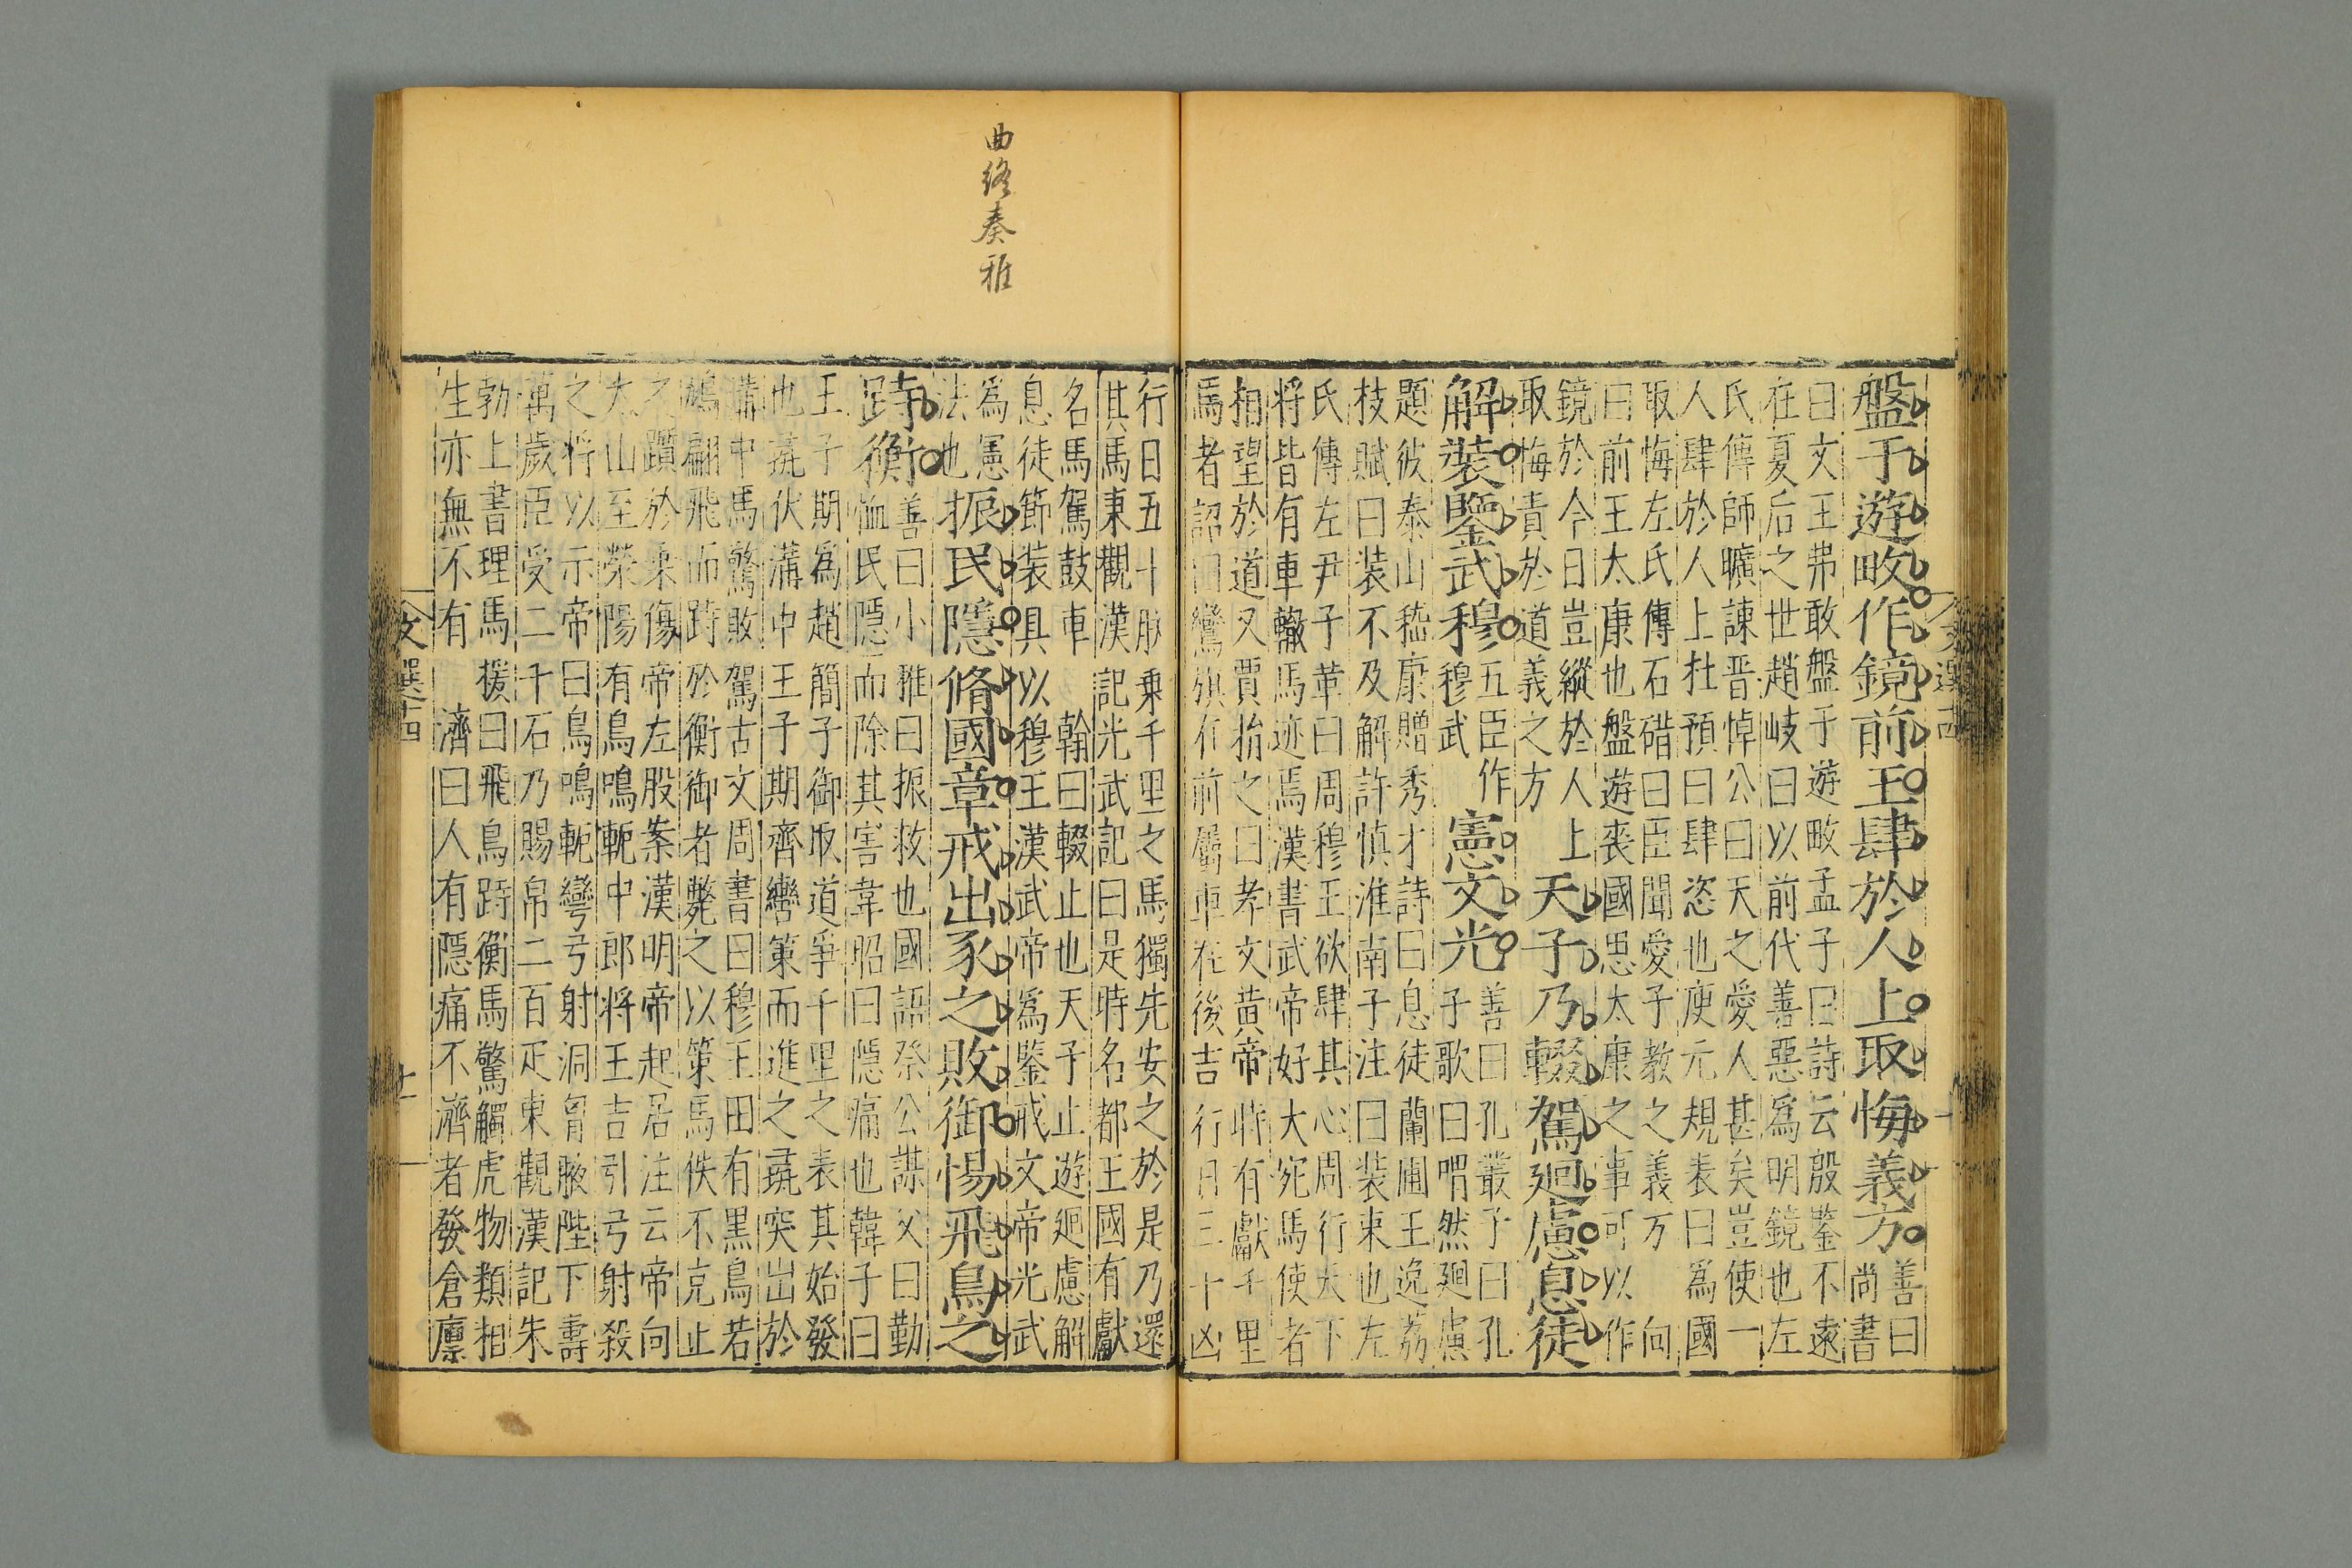 盤于遊畋作鏡前王肆於人上取悔義方
善曰
尚書
曰文王弗敢盤于遊畋孟子曰詩云殷鑒不遠
在夏后之世趙岐曰以前代善惡爲明鏡也左
氏傳師曠諫晋悼公曰天之愛人甚矣豈使一
人肆於人上杜預曰肆恣也庾元規表曰爲國
取悔左氏傳石碏曰臣聞愛子教之義方 向
曰前王太康也盤遊喪國思太康之事可以作
鏡於今日豈縱於人上
取悔責於道義之方
天子乃輟駕廻慮息徒
解裝鑒武穆
五臣作
穆武
憲文光
善曰孔叢子曰孔
子歌曰喟然廻慮
題彼泰山嵇康贈秀才詩曰息徒蘭圃王逸荔
枝賦曰裝不及解許慎淮南子注曰裝束也左
氏傳左尹子革曰周穆王欲肆其心周行天下
将皆有車轍馬迹焉漢書武帝好大宛馬使者
相望於道又賈捐之曰孝文黄帝時有獻千里
馬者詔曰鸞旗在前屬車在後吉行日三十凶
文選十四
曲終奏雅
行日五十朕乘千里之馬獨先安之於是乃還
其馬東觀漢記光武記曰是時名都王國有獻
名馬駕鼓車 翰曰輟止也天子止遊廻慮解
息徒節裝具以穆王漢武帝爲鑒戒文帝光武
爲憲
法也
振民隱脩國章戒出豕之敗御惕飛鳥之
跱衡
善曰小雅曰振救也國語祭公謀父曰勤
恤民隱而除其害韋昭曰隱痛也韓子曰
王子期爲趙簡子御取道爭千里之表其始發
也彘伏溝中王子期齊轡策而進之彘突出於
溝中馬驚敗駕古文周書曰穆王田有黒鳥若
鳩翩飛而跱於衡御者斃之以策馬佚不克止
之躓於乘傷帝左股案漢明帝起居注云帝向
太山至滎陽有鳥鳴軛中郎将王吉引弓射殺
之将以示帝曰鳥鳴軛彎弓射洞胷腋陛下壽
萬歲臣受二千石乃賜帛二百疋東觀漢記朱
勃上書理馬援曰飛鳥跱衡馬驚觸虎物類相
生亦無不有 濟曰人有隱痛不濟者發倉廪
文選十四